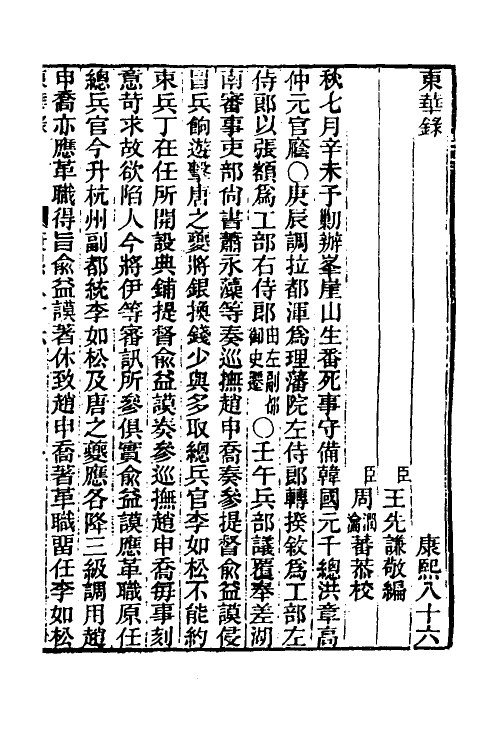 東華錄　康熙八十六
臣王先謙敬編
臣周潤蕃周瀹蕃恭校
秋七月辛未予勦辦峯崖山生番死事守備韓國元千總洪章高
仲元官廕○庚辰調拉都渾爲理藩院左侍郎轉揆敘爲工部左
侍郎以張額爲工部右侍郎由左副都御史遷○壬午兵部議覆奉差湖
南審事吏部尙書蕭永藻等奏巡撫趙申喬奏參提督俞益謨侵
冒兵餉遊擊唐之夔將銀換錢少與多取總兵官李如松不能約
束兵丁在任所開設典鋪提督俞益謨叅參巡撫趙申喬每事刻
意苛求故欲陷人今將伊等審訊所參俱實俞益謨應革職原任
總兵官今升杭州副都統李如松及唐之夔應各降三級調用趙
申喬亦應革職得旨俞益謨著休致趙申喬著革職留任李如松